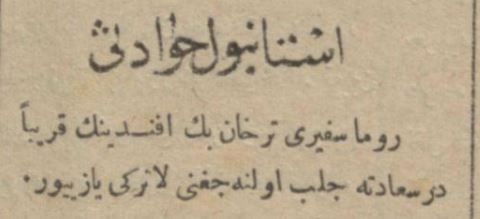 استانبول حوادثى
روما سفيرى ترخان بك افندينك قريباً
درسعادته جلب اولنه جغنى لاتركى يازييور.